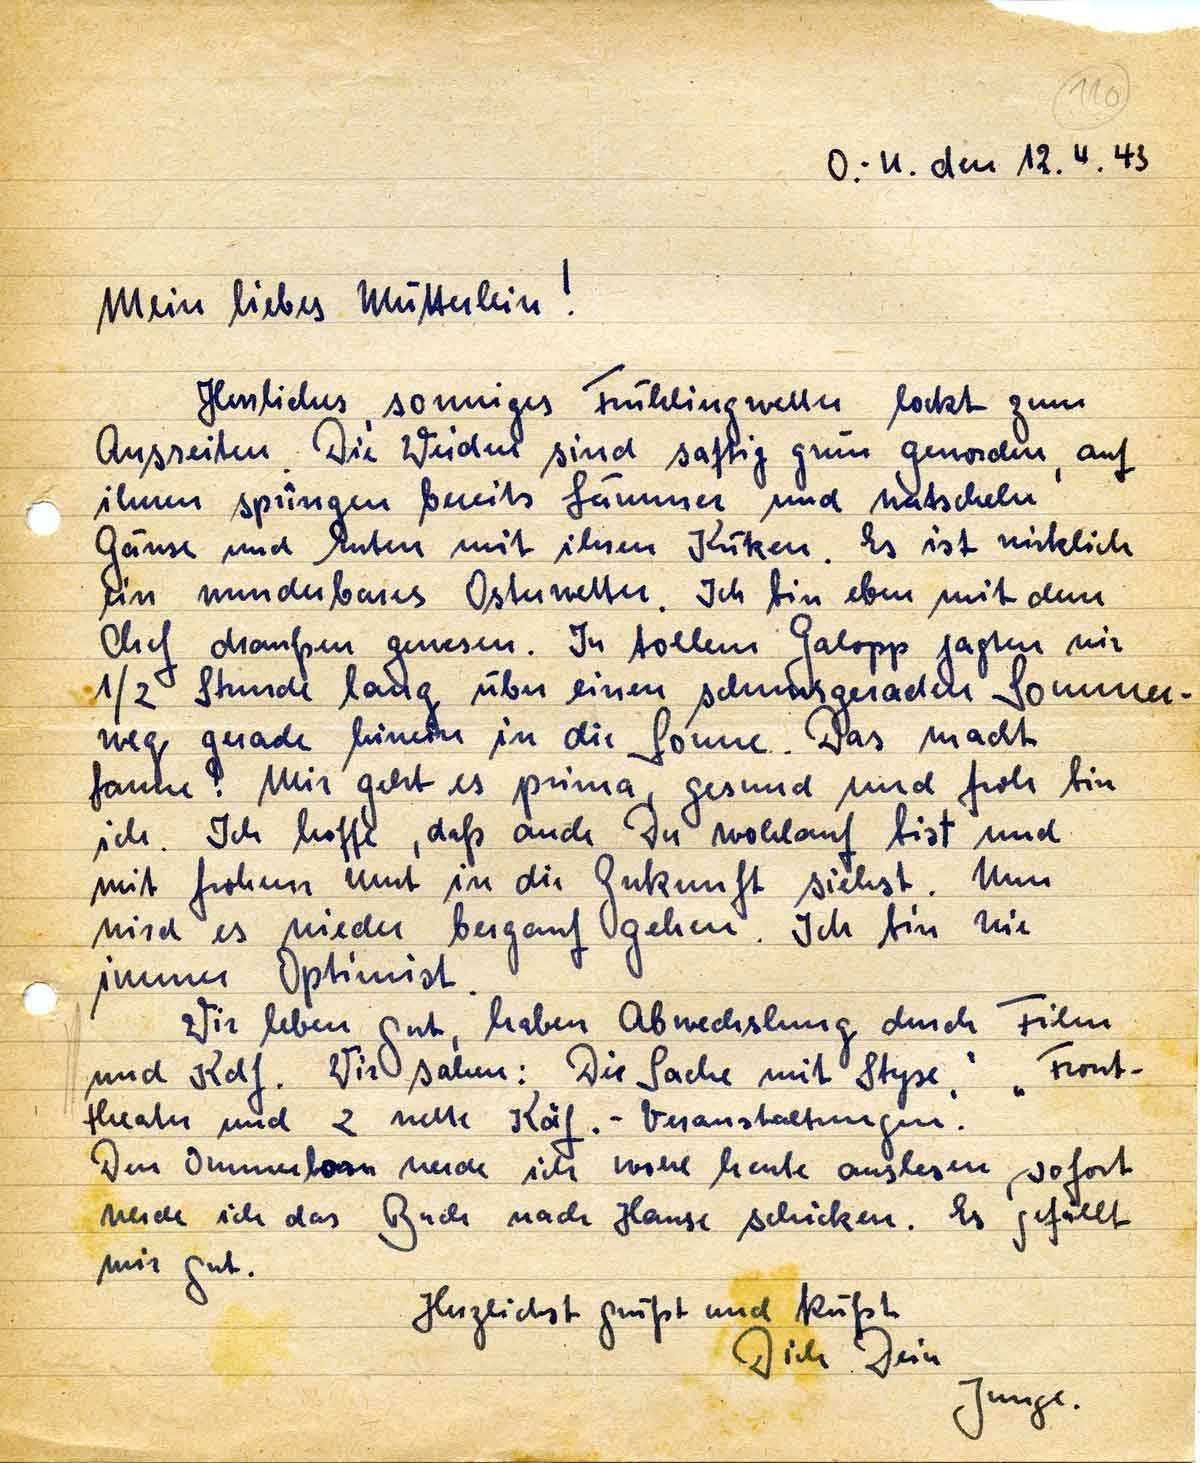 110
O.-U. den 12.4.43
Mein liebes Mütterlein!
Herrliches, sonniges Frühlingwetter lockt zum
Ausreiten. Die Weiden sind saftig grün geworden, auf
ihnen springen bereits Lämmer und watscheln
Gänse und Enten mit ihren Küken. Es ist wirklich
ein wunderbares Osterwetter. Ich bin eben mit dem
Chef draußen gewesen. In tollem Galopp jagten wir
1/2 Stunde lang über einen schnurgeraden Sommer-
weg gerade hinein in die Sonne. Das macht
Laune! Mir geht es prima, gesund und froh bin
ich. Ich hoffe, daß auch Du wohlauf bist und
mit frohem Mut in die Zukunft siehst. Nun
wird es wieder bergauf gehen. Ich bin wie
immer Optimist.
Wir leben gut, haben Abwechslung durch Film
und KdF. Wir sahen: Die Sache mit Styx", „Front-
theater und 2 nette KdF.-Veranstaltungen.
Den werde ich wohl heute auslesen, sofort
werde ich das Buch nach Hause schicken. Es gefällt
mir gut.
Herzlichst grüßt und küßt
Dich Dein
Junge.